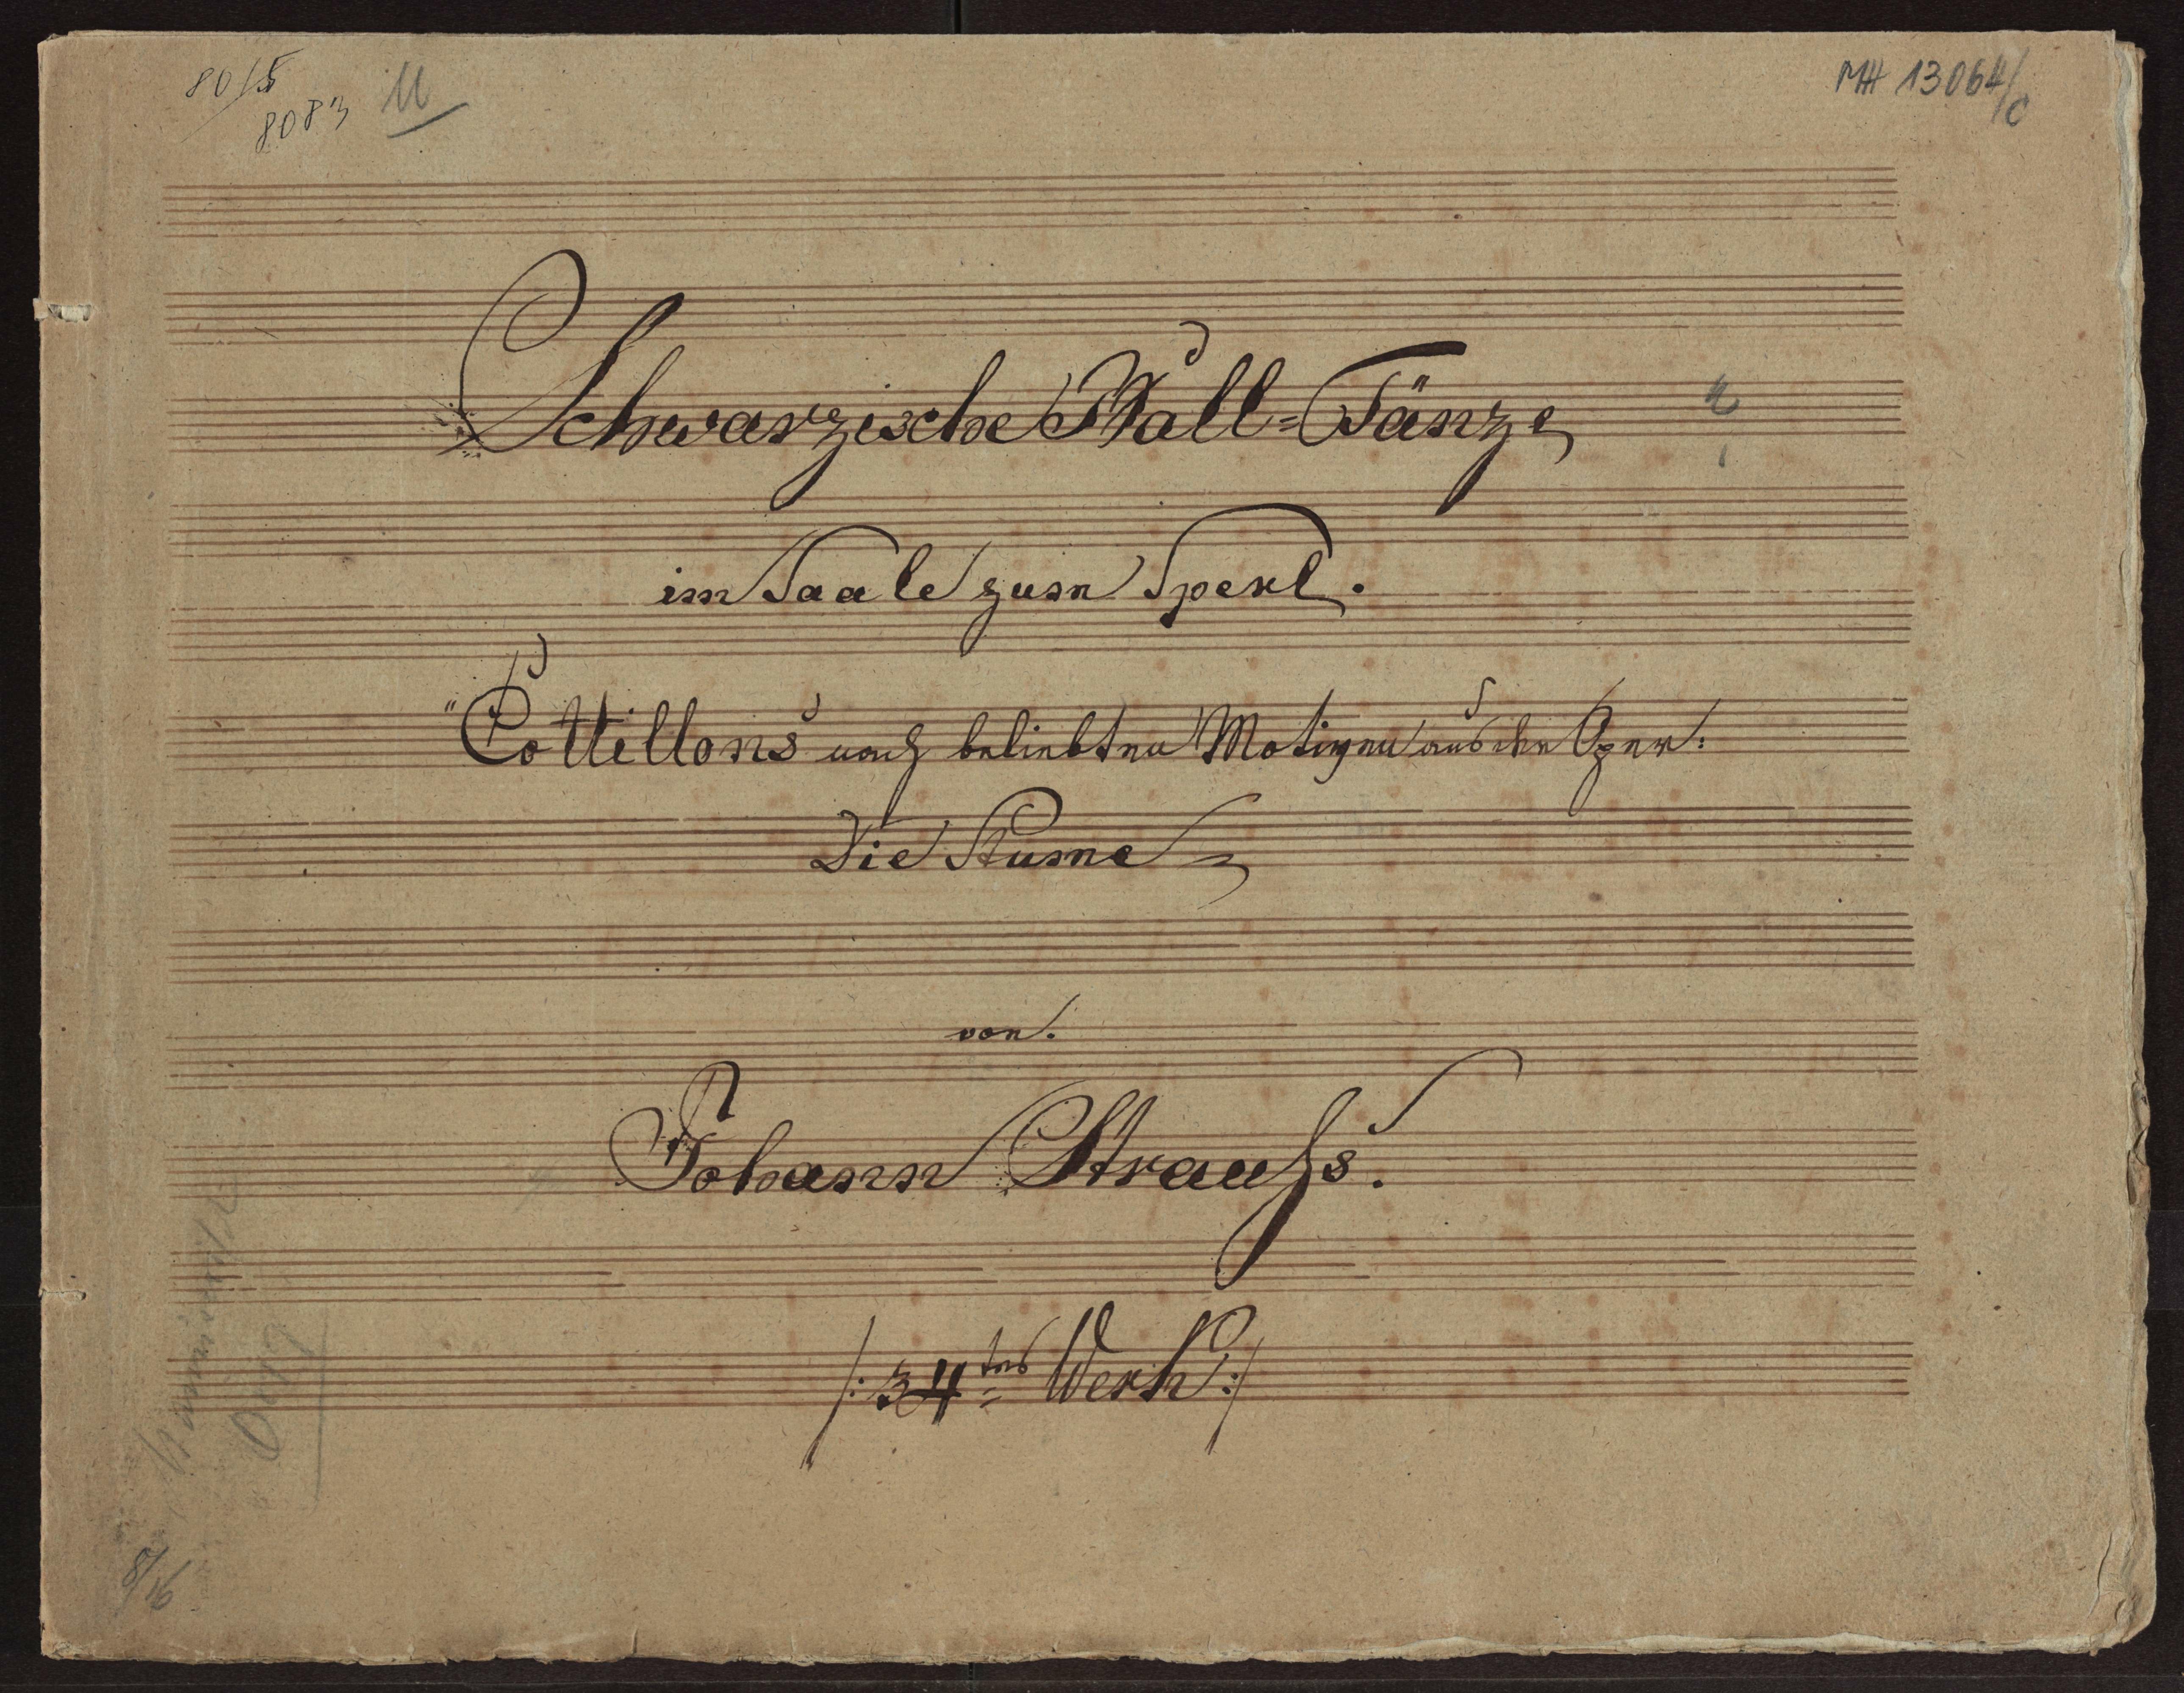 8015
8083
MH 13064/c
Schwarzische Ball=Tänze
im Saale zum Sperl.
"Cottillons nach beliebten Motiven aus der Oper:
Die Stume
von.
Johann Strauſs.
/: 34tes Werk :/